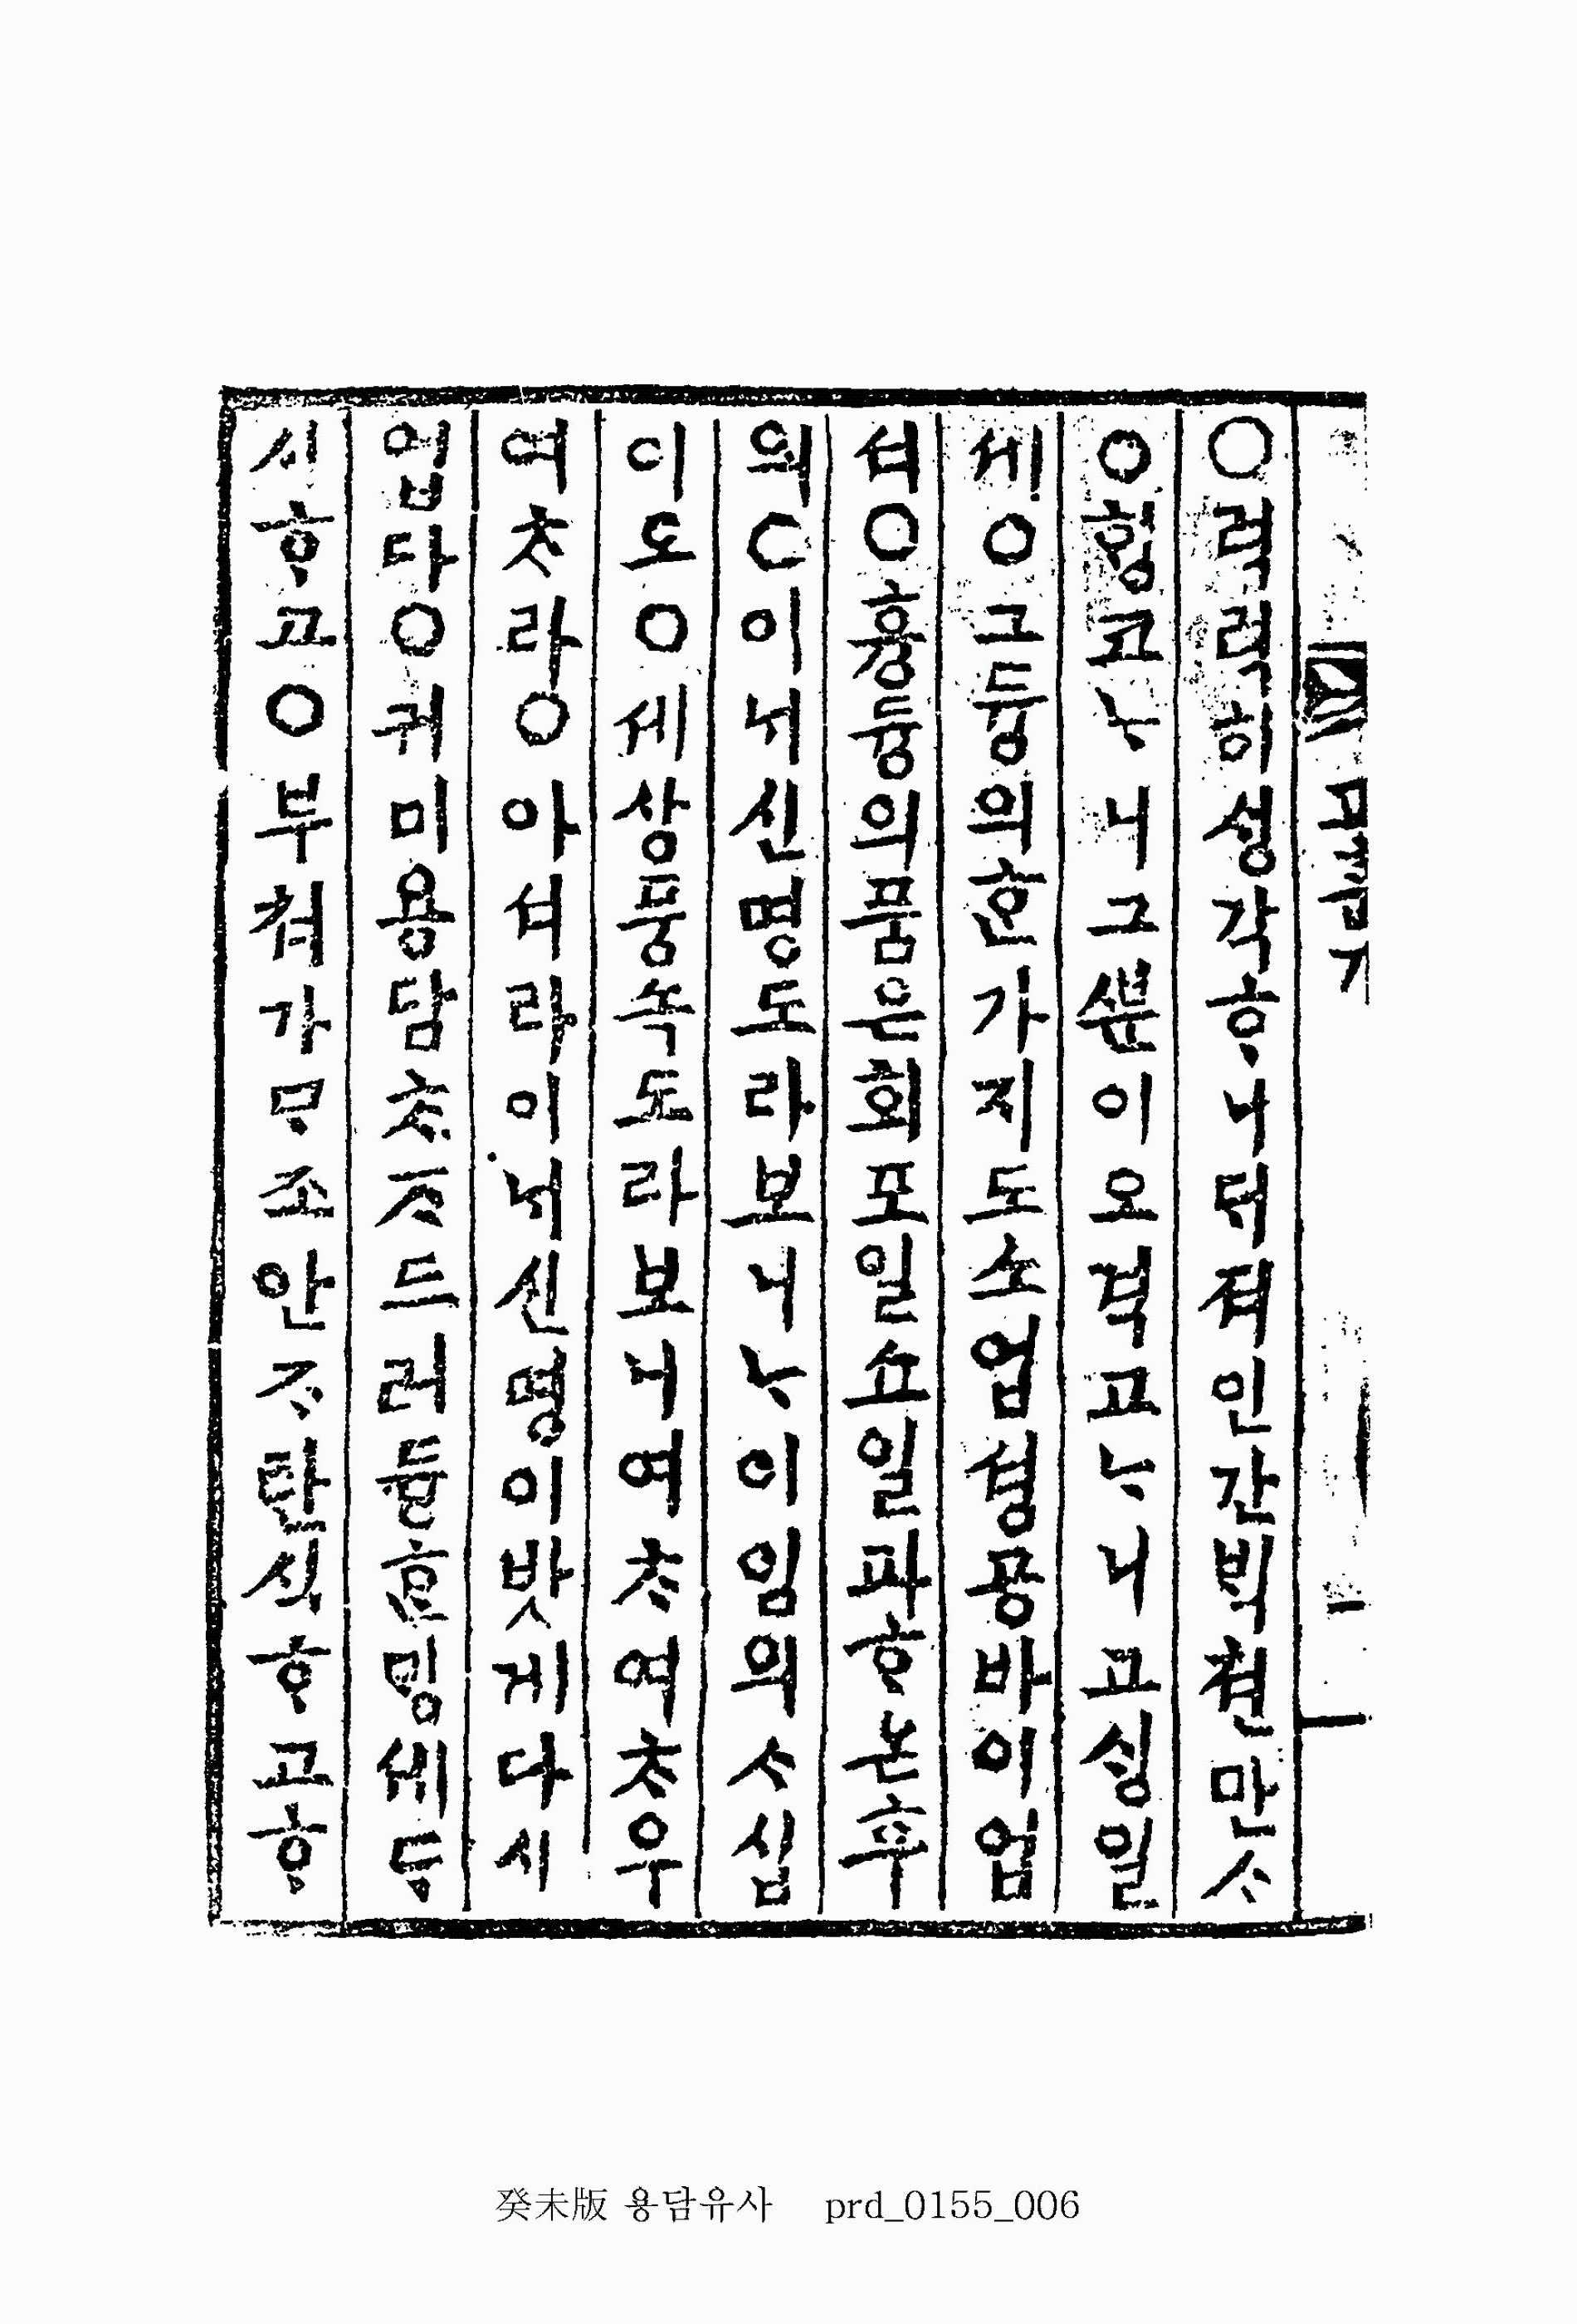 ○력력히ᄉᆡᆼ각ᄒᆞ니ᄃᆡ져인간ᄇᆡᆨ쳔만ᄉᆞ
○ᄒᆡᆼ고ᄂᆞ니그ᄲᅮᆫ이오격고ᄂᆞ니고ᄉᆡᆼ일
세○그듕의ᄒᆞᆫ가지도소업셩공바이업
셔○흉듕의품은회포일쇼일파ᄒᆞ온후
의○이ᄂᆡ신명도라보니ᄂᆞ이임의ᄉᆞ십
이도○세상풍쇽도라보니여ᄎᆞ여ᄎᆞ우
여ᄎᆞ라○아셔라이ᄂᆡ신명이밧게다시
업다○귀미용담ᄎᆞᄌᆞ드러듕ᄒᆞᆫᄆᆡᆼ세ᄃᆞ
시ᄒᆞ고○부쳐가ᄆᆞ조안ᄌᆞ탄식ᄒᆞ고ᄒᆞ
癸未版 용담유사 prd_0155_006